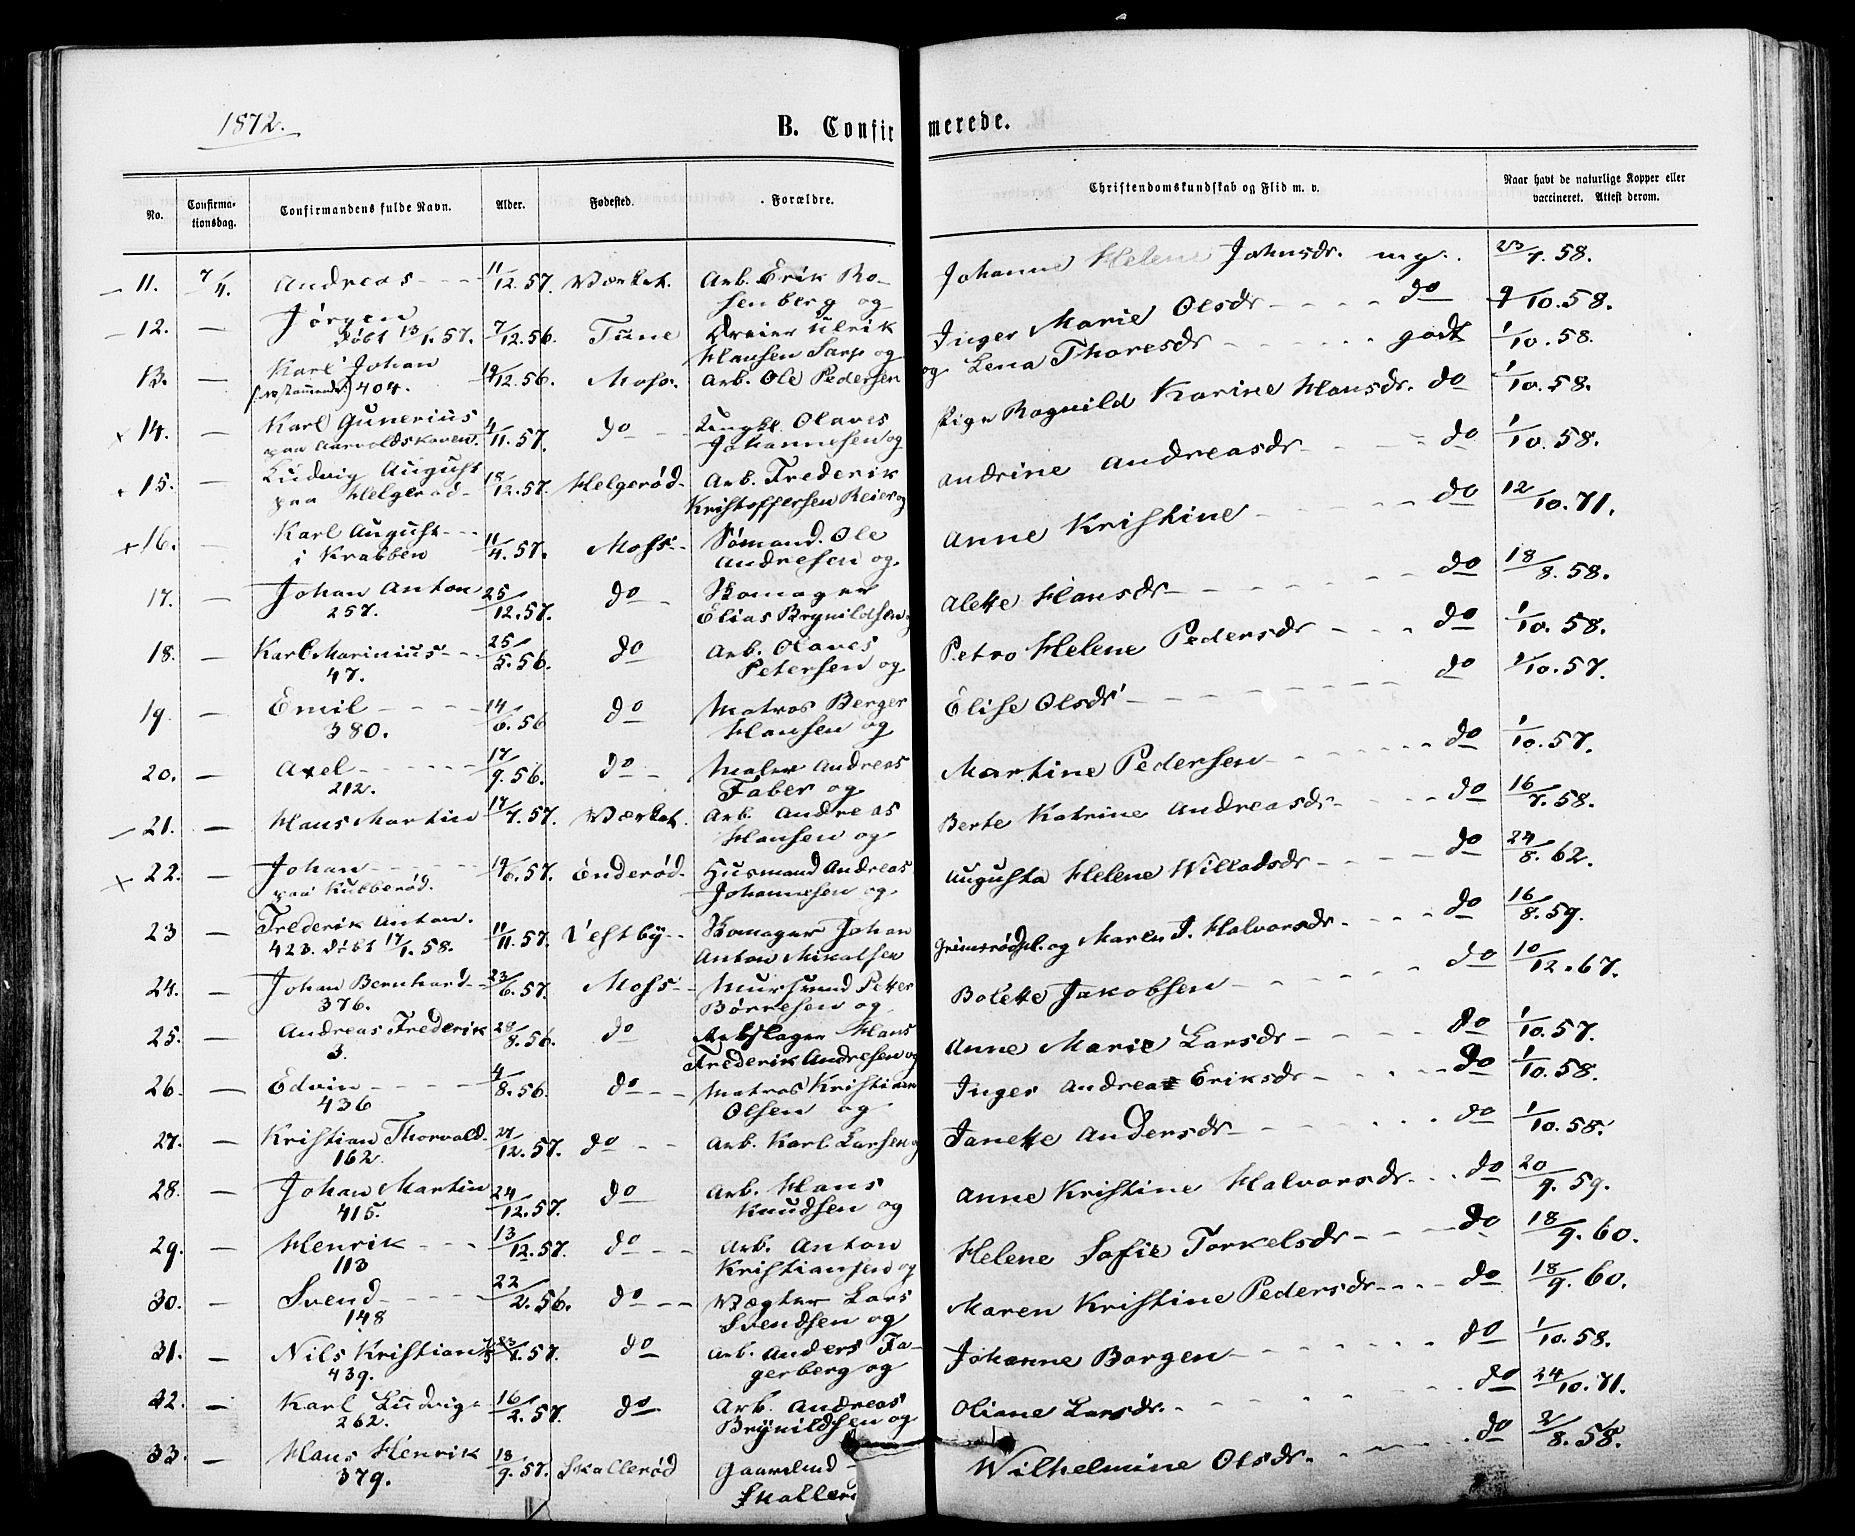 1872.
B. Confirmerede.
No. Confirma-tionsdag. Confirmandens fulde Navn. Alder. Fødested. Forældre. Christendomskundskab og Flid m. v. Naar havt de naturlige Kopper eller vaccineret. Attest derom.
11. 7/4. Andreas 11/12.57. Værket. Arb. Erik Ro-
senberg og Johanne Helene Johnsdr. mg. 23/7.58.
12. — Jørgen 7/12.56. Tune Dreier Ulrik
døbt 13/1.57. Hansen Sarp og Inger Marie Olsdr do 9/10.58.
13. — Karl Johan 19/12.56. Moss. Arb. Ole Pedersen og Lena Thoresdr godt 1/10.58.
404.
x 14. — Karl Gunerius 4/11.57. do Olaves
paa Aarvoldskoven. Johannesen og Pige Ragnild Karine Hansdr. do 1/10.58.
15. — Ludvig August 18/12.57. Helgerød Arb. Frederik
paa Helgerød Kristoffersen Reier og Andrine Andreasdr do 1/10.58.
x 16. — Karl August 11/4.57. Moss Sømand. Ole
i Krabben Andresen og Anne Kristine do 12/10.71.
17. — Johan Anton 25/12.57. do Skomager
257. Elias Brynildsen Alette Hansdr do 18/8.58.
18. — Karl Marinius 25/5.56. do Arb. Olaves
47. Petersen og Petra Helene Pedersdr do 1/10.58.
19. — Emil 14/6.56 do Matros Berger
380. Hansen og Elise Olsdr do 1/10.57.
20. — Axel 17/9.56. do Maler Andreas
212. Faber og Martine Pedersen do 1/10.57.
21. — Hans Martin 17/7.57. Værket. Arb. Andreas
Hansen og Berte Katrine Andreasdr do 16/7.58.
x 22. — Johan 19/6.57. Enderød. Husmand Andreas
paa Kulberød. Johannesen og Augusta Helene Willadsdr do 24/8.62.
23 — Frederik Anton. 11/11.57. Vestby Skomager Johan
423. døbt 17/1.58. Anton Mikalsen Grimsrødpl. og Maren J. Halvorsdr do 16/8.59.
24. — Johan Bernhard 23/6.57. Moss Muursvend Petter
376. Børresen og Bolette Jakobsen do 10/12.67.
25. — Andreas Frederik 28/8.56. do Rebslager Hans
3. Frederik Andresen og Anne Marie Larsdr do 1/10.57.
26. — Edvin 4/8.56. do Matros Kristian
436 Olsen og Inger Andrea Eriksdr do 1/10.58.
27. — Kristian Thorvald 27/12.57. do Arb. Karl Larsen og Janette Andersdr do 1/10.58.
162.
28. — Johan Martin 24/12.57. do Arb. Hans
415. Knudsen og Anne Kristine Halvorsdr do 20/9.59.
29. — Henrik 13/12.57. do Arb. Anton
113 Kristiansen og Helene Sofie Torkelsdr do 18/9.60.
30. — Svend 22/2.56. do Vægter Lars
148 Svendsen og Maren Kristine Pedersdr do 18/9.60.
31. — Nils Kristian 23/1.57. do Arb. Anders Fa-
439. gerberg og Johanne Borgen do 1/10.58.
32. — Karl Ludvig 16/2.57. do Arb. Andreas
262. Brynildsen og Oliane Larsdr. do 24/10.71.
33. — Hans Henrik 18/9.57. Skallerød Gaarmand
379. Skaller Wilhelmine Olsdr. do 2/8.58.